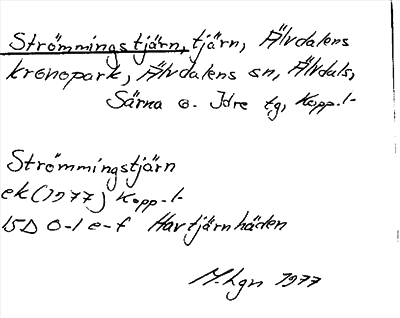 Strömmingstjärn, tjärn, Älvdalens
kronopark, Älvdalens sn, Älvdals,
Särna o. Idre tg, Kopp. l.
Strömmingstjärn
ek (1977) Kopp. l.
15D 0-1 e-f Havtjärnhäden
M. Lgn 1977